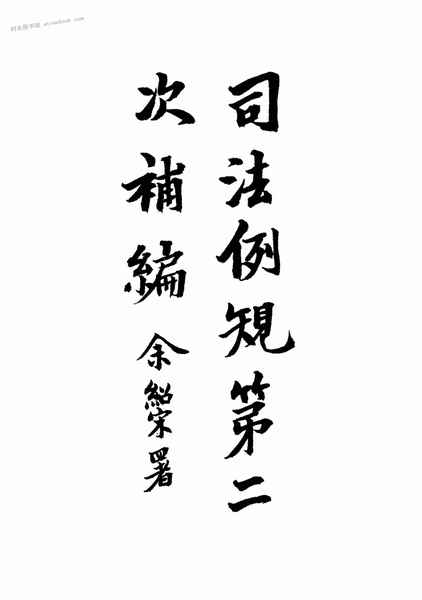 司法例規第二
次補編
余紹宋署